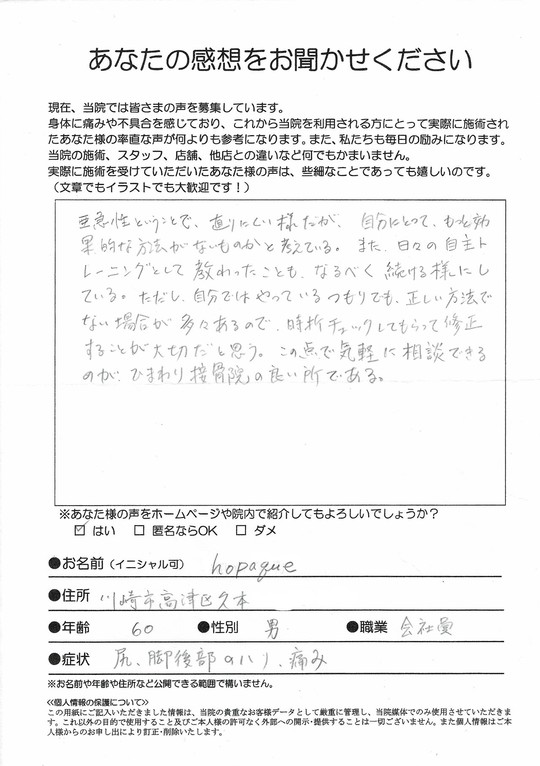 あなたの感想をお聞かせください
現在、当院では皆さまの声を募集しています。
身体に痛みや不具合を感じており、これから当院を利用される方にとって実際に施術され
たあなた様の率直な声が何よりも参考になります。また、私たちも毎日の励みになります。
当院の施術、スタッフ、店舗、他店との違いなど何でもかまいません。
実際に施術を受けていただいたあなた様の声は、些細なことであっても嬉しいのです。
（文章でもイラストでも大歓迎です！）
亜急性ということで、直りにくい様だが、自分にとって、もっと効
果的な方法がないものかと考えている。また、日々の自主ト
レーニングとして教わったことも、なるべく続ける様にし
ている。ただし、自分ではやっているつもりでも、正しい方法で
ない場合が多々あるので、時折チェックしてもらって修正
することが大切だと思う。この点で気軽に相談できる
のが、ひまわり接骨院の良い所である。
※あなた様の声をホームページや院内で紹介してもよろしいでしょうか？
☑ はい □ 匿名ならOK □ ダメ
●お名前（イニシャル可） hopaque
●住所 川崎市高津区久本
●年齢 60 ●性別 男 ●職業 会社員
●症状 尻、脚後部のハリ、痛み
※お名前や年齢や住所など公開できる範囲で構いません。
≪個人情報の保護について≫
この用紙にご記入いただきました情報は、当院の貴重なお客様データとして厳重に管理し、当院媒体でのみ使用させていただきま
す。これ以外の目的で使用すること及びご本人様の許可なく外部への開示・提供することは一切ございません。また個人情報はご本
人様からのお申し出により訂正・削除いたします。